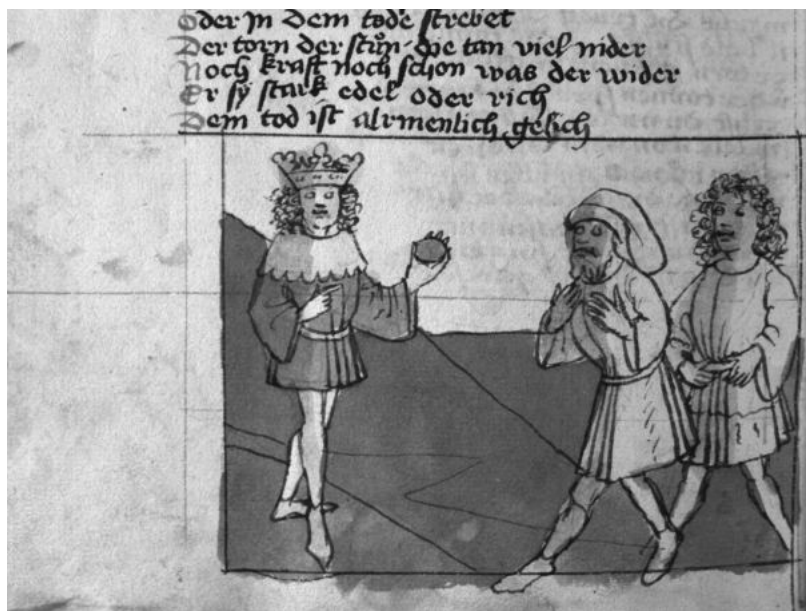 oder in dem tode strebet
Der torn der stůn die tan viel nider
Noch kraft noch schon was der wider
Er sÿ stark edel oder rich
Dem tod ist alrmenlich gelich